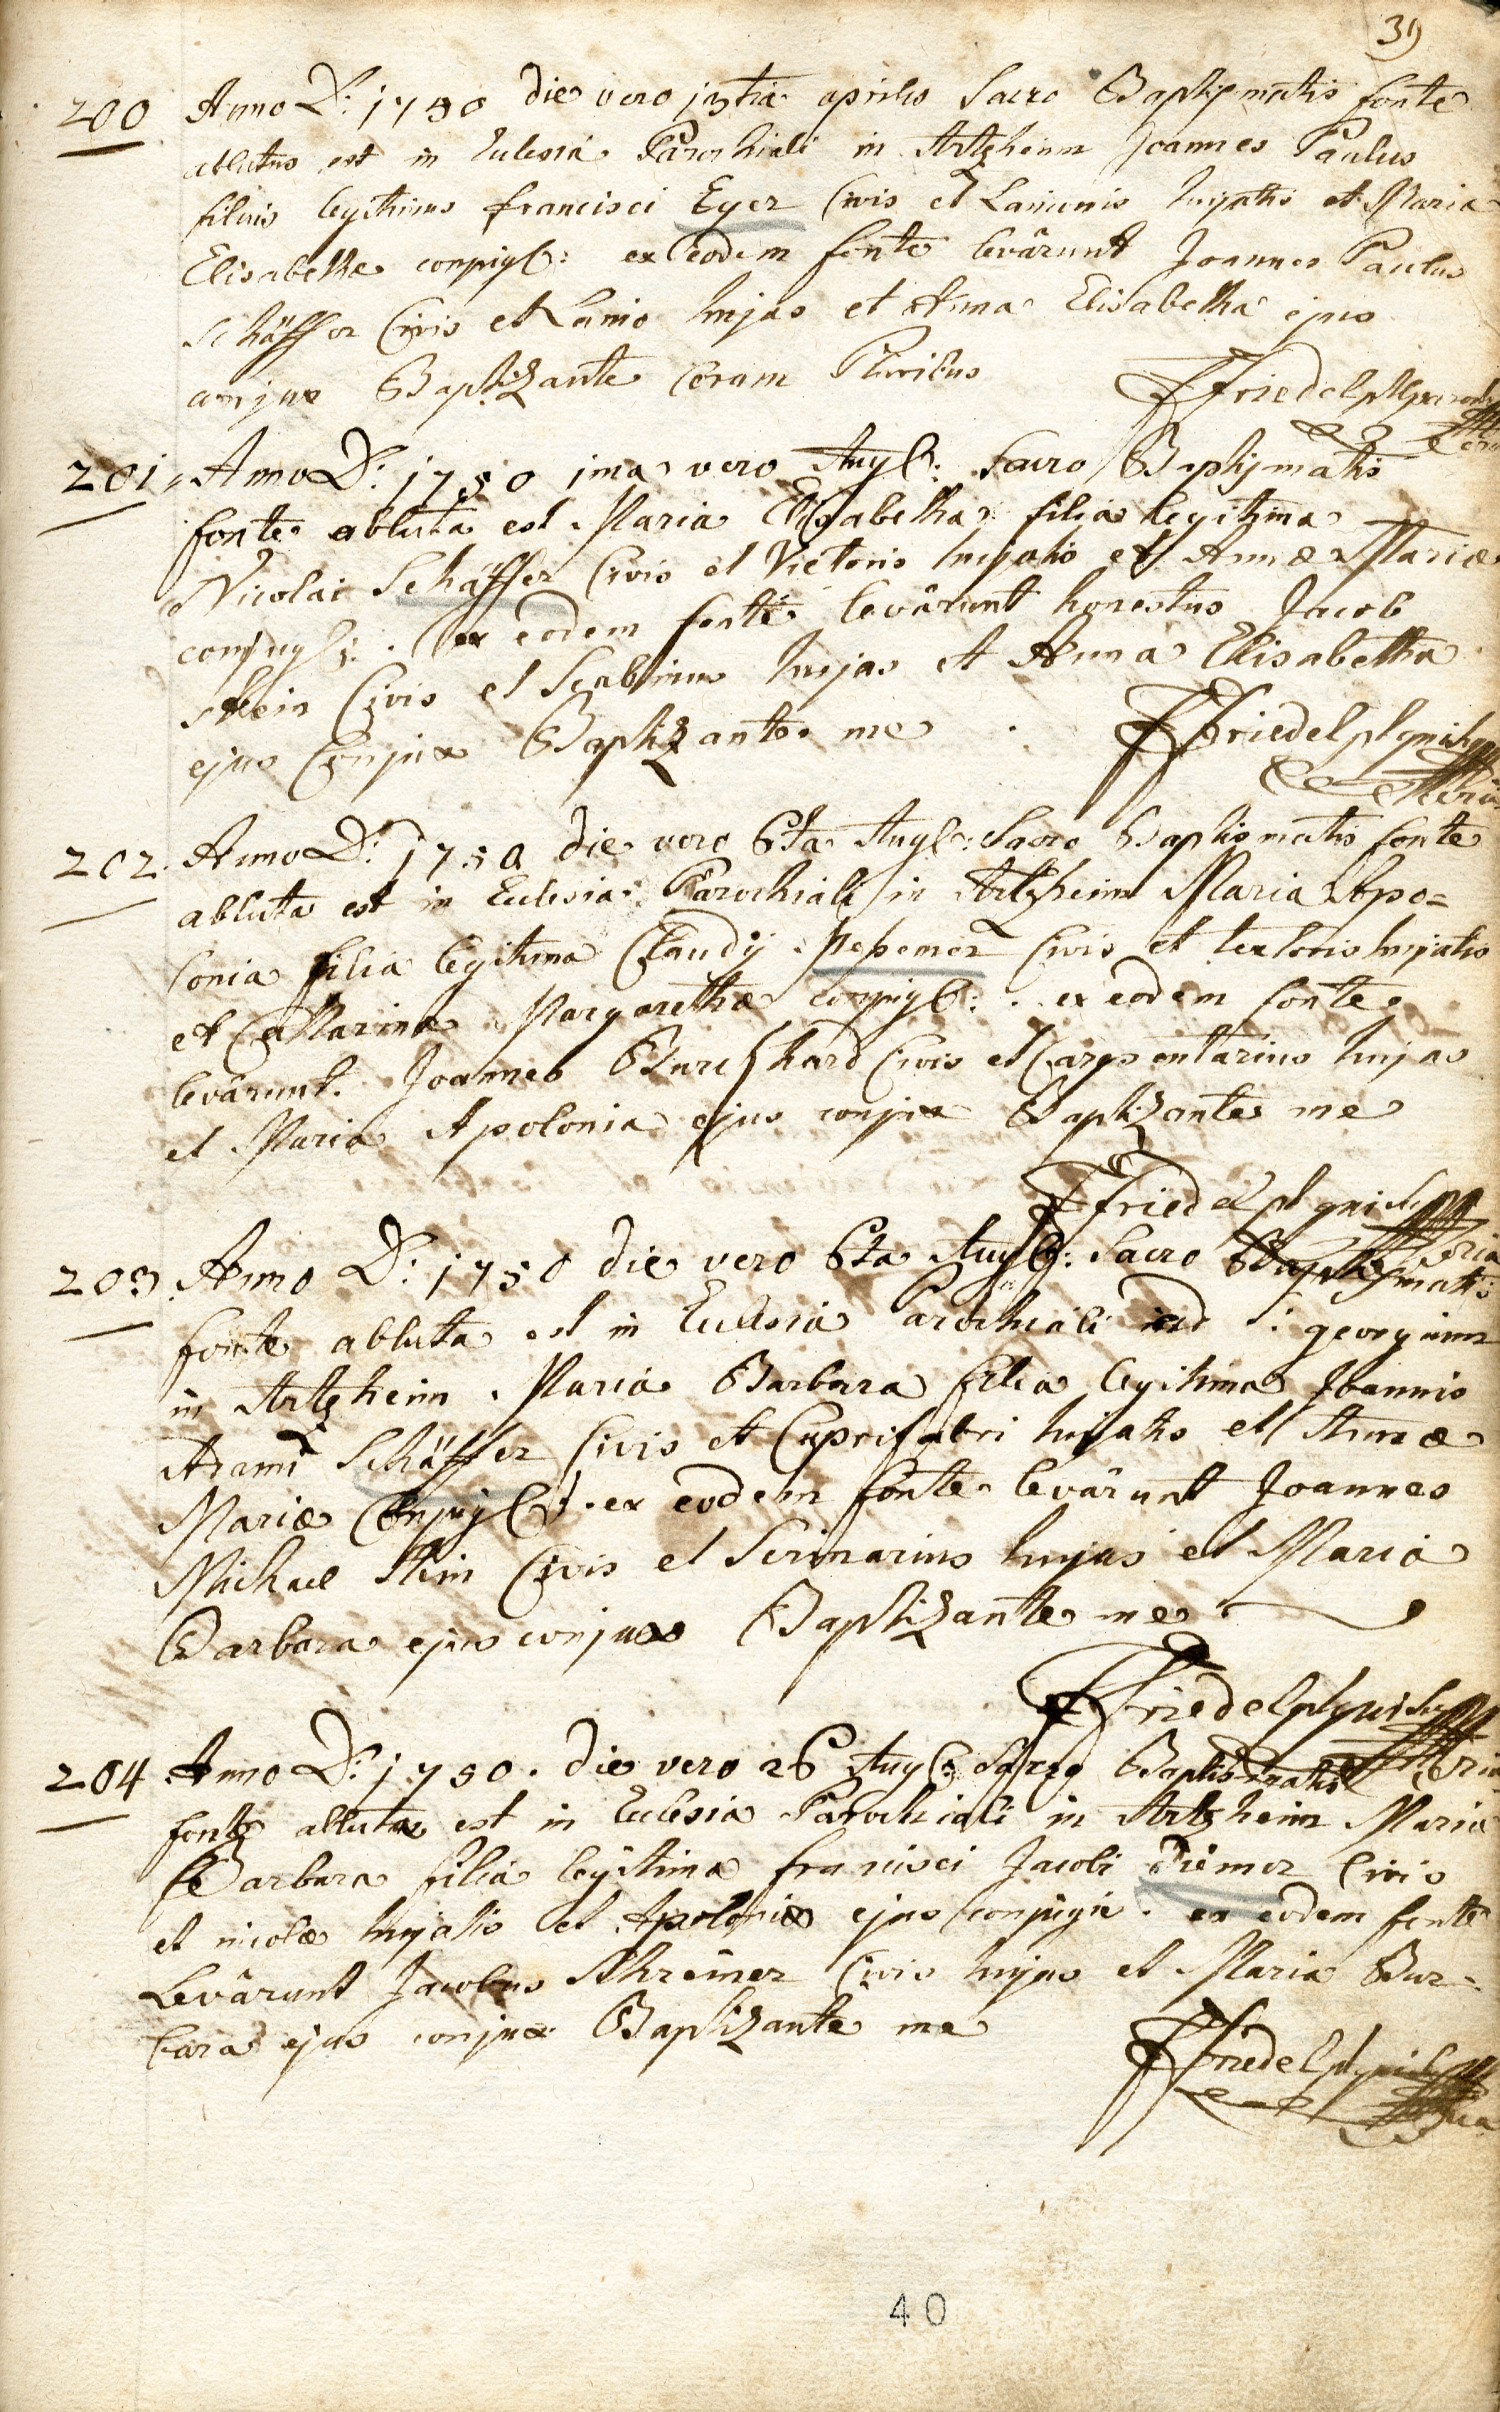 39
200 Anno D: 1750 die vero 13tia aprilis Sacro Baptismatis fonte
ablutus est in Eclesia Parochiali in Artzheim Joannes Paulus
filius legitimus francisci Eyer Civis et Lanionis hujatis et Maria
Elisabethe conjugB: ex eodem fonte levârunt Joannes Paulus
Schäffer Civis et Lanio hujas et Anna Elisabetha ejus
conjux Baptizante Coram Pluribus
Friedel
201. Anno D: 1750 1ma vero AugB: Sacro Baptismatis
fonte abluta est Maria Elisabetha filia legitima
Nicolai Schäffer Civis et Vietoris hujatis et Annæ Mariæ
conjugB: . ex eodem fonte levârunt honestus Jacob
stein Civis et Scabinus hujas et Anna Elisabetha
ejus Conjux Baptizante me .
Friedel
202. Anno D: 1750 die vero 6ta AugB: Sacro Baptismatis fonte
abluta est in Eclesia Parochiali in Artzheim Maria Apo=
lonia filia legitima Claudij pepemer Civis et textoris hujatis
et Margarethæ conjugB: . ex eodem fonte
levârunt. Joannes Burckhard Civis et Carpentarius hujas
et Maria Apolonia ejus conjux Baptizante me
Friedel
203. Anno D: 1750 die vero 6ta AugB: Sacro Baptismatis
fonte abluta est in Eclesia Parochiali ad S: georgium
in Artzheim . Maria Barbara filia legitima Joannis
Adami Schäffer Civis et Cuprifabri hujatis et Annæ
Mariæ ConjugB: . ex eodem fonte levârunt Joannes
Michael Stein Civis et Scrinarius hujas et Maria
Barbara ejus conjux Baptizante me
Friedel
204 Anno D: 1750 . die vero 26 AugB: Sacro Baptismatis
fonte abluta est in Eclesia Parochiali in Artzheim Maria
Barbara filia legitima francisci Jacobi Diemer Civis
et incolæ hujatis et Apoloniæ ejus conjugis . ex eodem fonte
Levârunt Jacobus Civis hujas et Maria Bar-
bara ejus conjux Baptizante me
Friedel
40